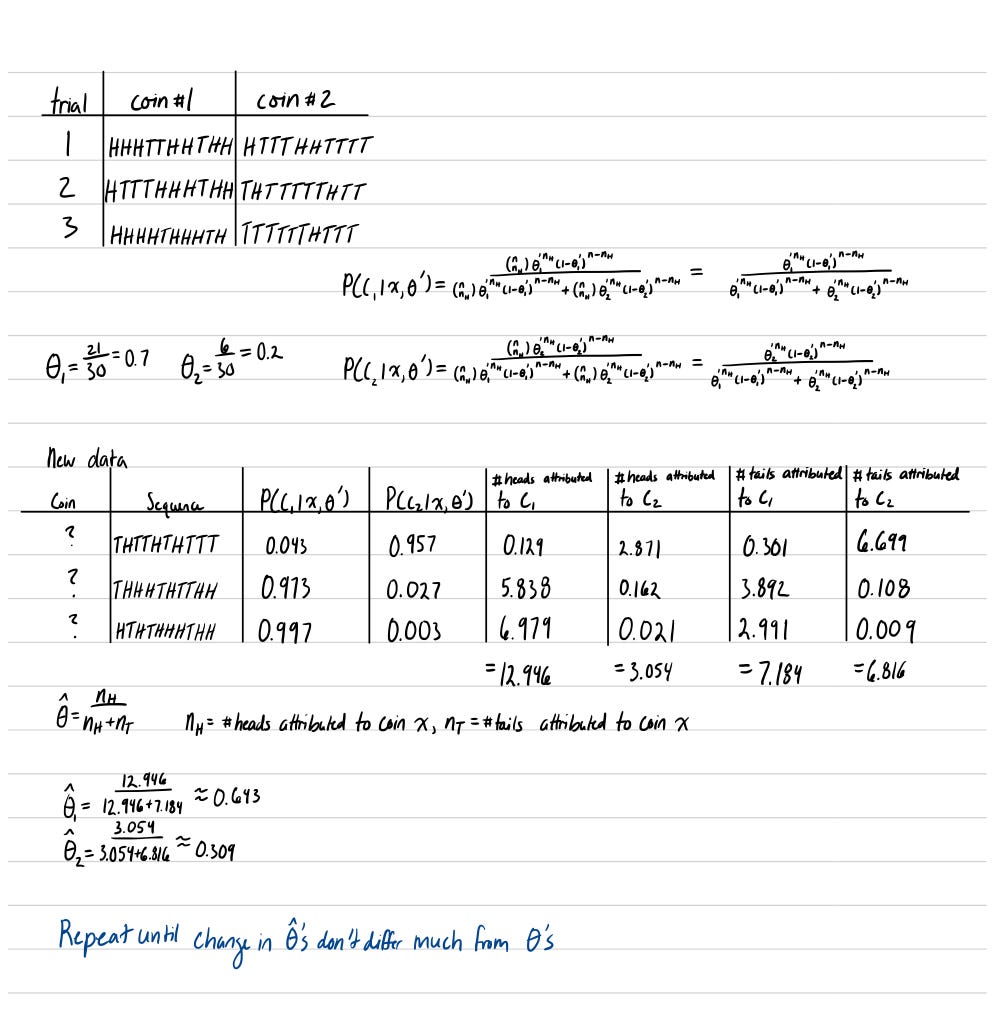 trial coin #1 coin #2
1 HHHTTHHTHH HTTTHHTTTT
2 HTTTHHHTHH THTTTTTHTT
3 HHHHTHHHTH TTTTTTHTTT
P(C₁|x,θ')= (n nH) θ₁'^nH (1-θ₁')^n-nH / (n nH) θ₁'^nH (1-θ₁')^n-nH + (n nH) θ₂'^nH (1-θ₂')^n-nH = θ₁'^nH (1-θ₁')^n-nH / θ₁'^nH (1-θ₁')^n-nH + θ₂'^nH (1-θ₂')^n-nH
θ₁=21/30=0.7 θ₂=6/30=0.2 P(C₂|x,θ')= (n nH) θ₂'^nH (1-θ₂')^n-nH / (n nH) θ₁'^nH (1-θ₁')^n-nH + (n nH) θ₂'^nH (1-θ₂')^n-nH = θ₂'^nH (1-θ₂')^n-nH / θ₁'^nH (1-θ₁')^n-nH + θ₂'^nH (1-θ₂')^n-nH
New data
Coin Sequence P(C₁|x,θ') P(C₂|x,θ') # heads attributed to C₁ # heads attributed to C₂ # tails attributed to C₁ # tails attributed to C₂
? THTTHTHTTT 0.043 0.957 0.129 2.871 0.301 6.699
? THHHTHTTHH 0.973 0.027 5.838 0.162 3.892 0.108
? HTHTHHHTHH 0.997 0.003 6.979 0.021 2.991 0.009
=12.946 =3.054 =7.184 =6.816
θ̂=nH/nH+nT nH= # heads attributed to coin x, nT = # tails attributed to coin x
θ̂₁= 12.946/12.946+7.184 ≈0.643
θ̂₂= 3.054/3.054+6.816 ≈ 0.309
Repeat until change in θ̂'s don't differ much from θ's